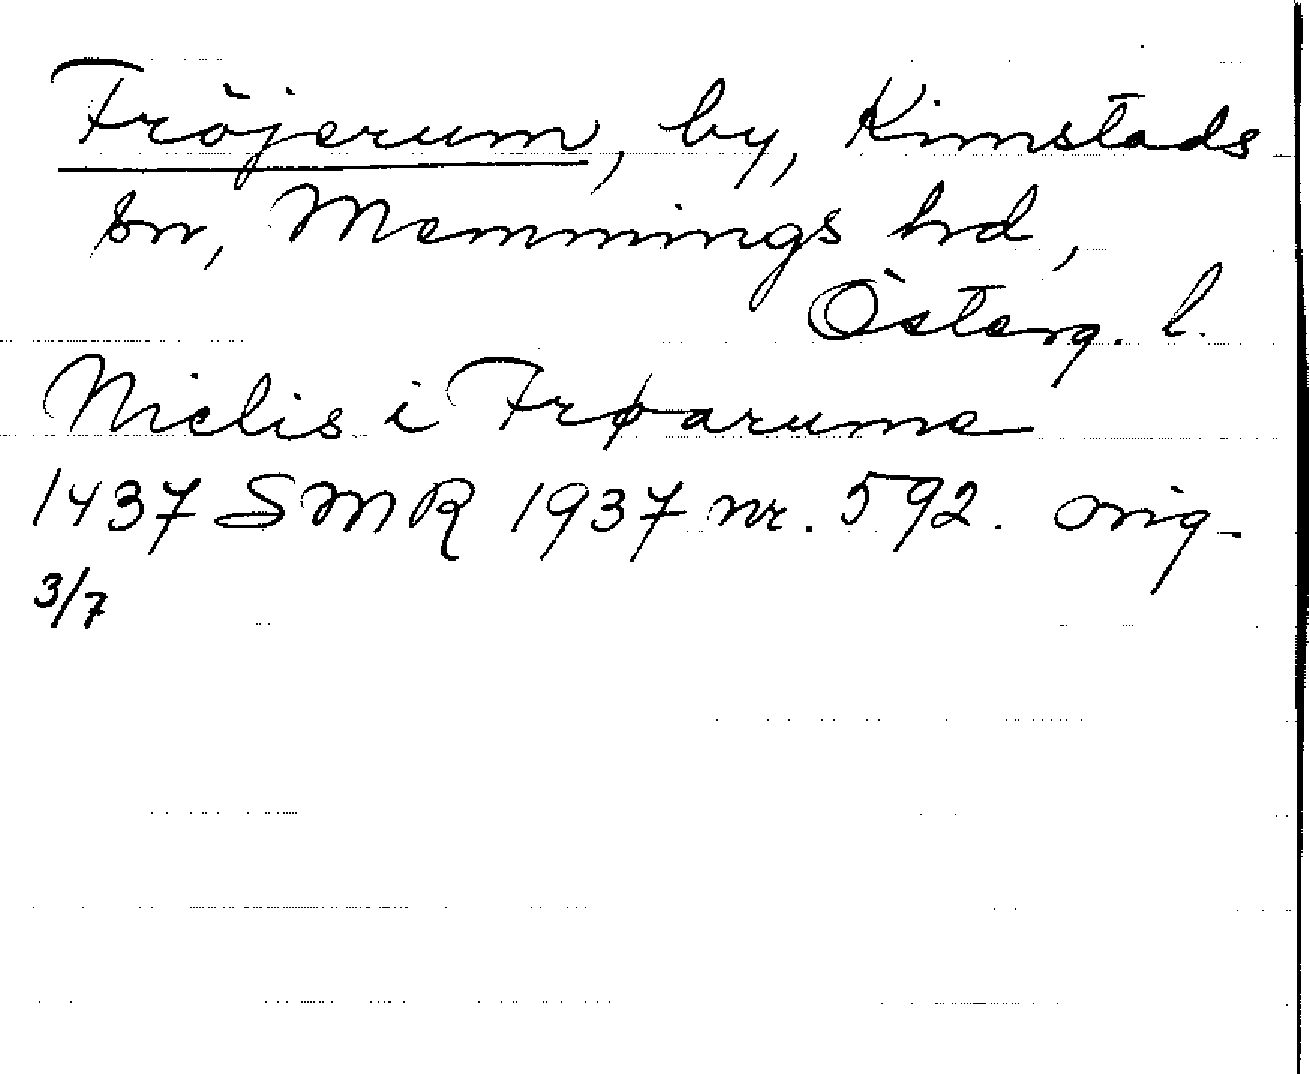 Fröjerum, by, Kimstads
sn, Memmings hd,
Österg. l.
Nielis i Frøarume
1437 SMR 1937 nr. 592. orig.
3/7